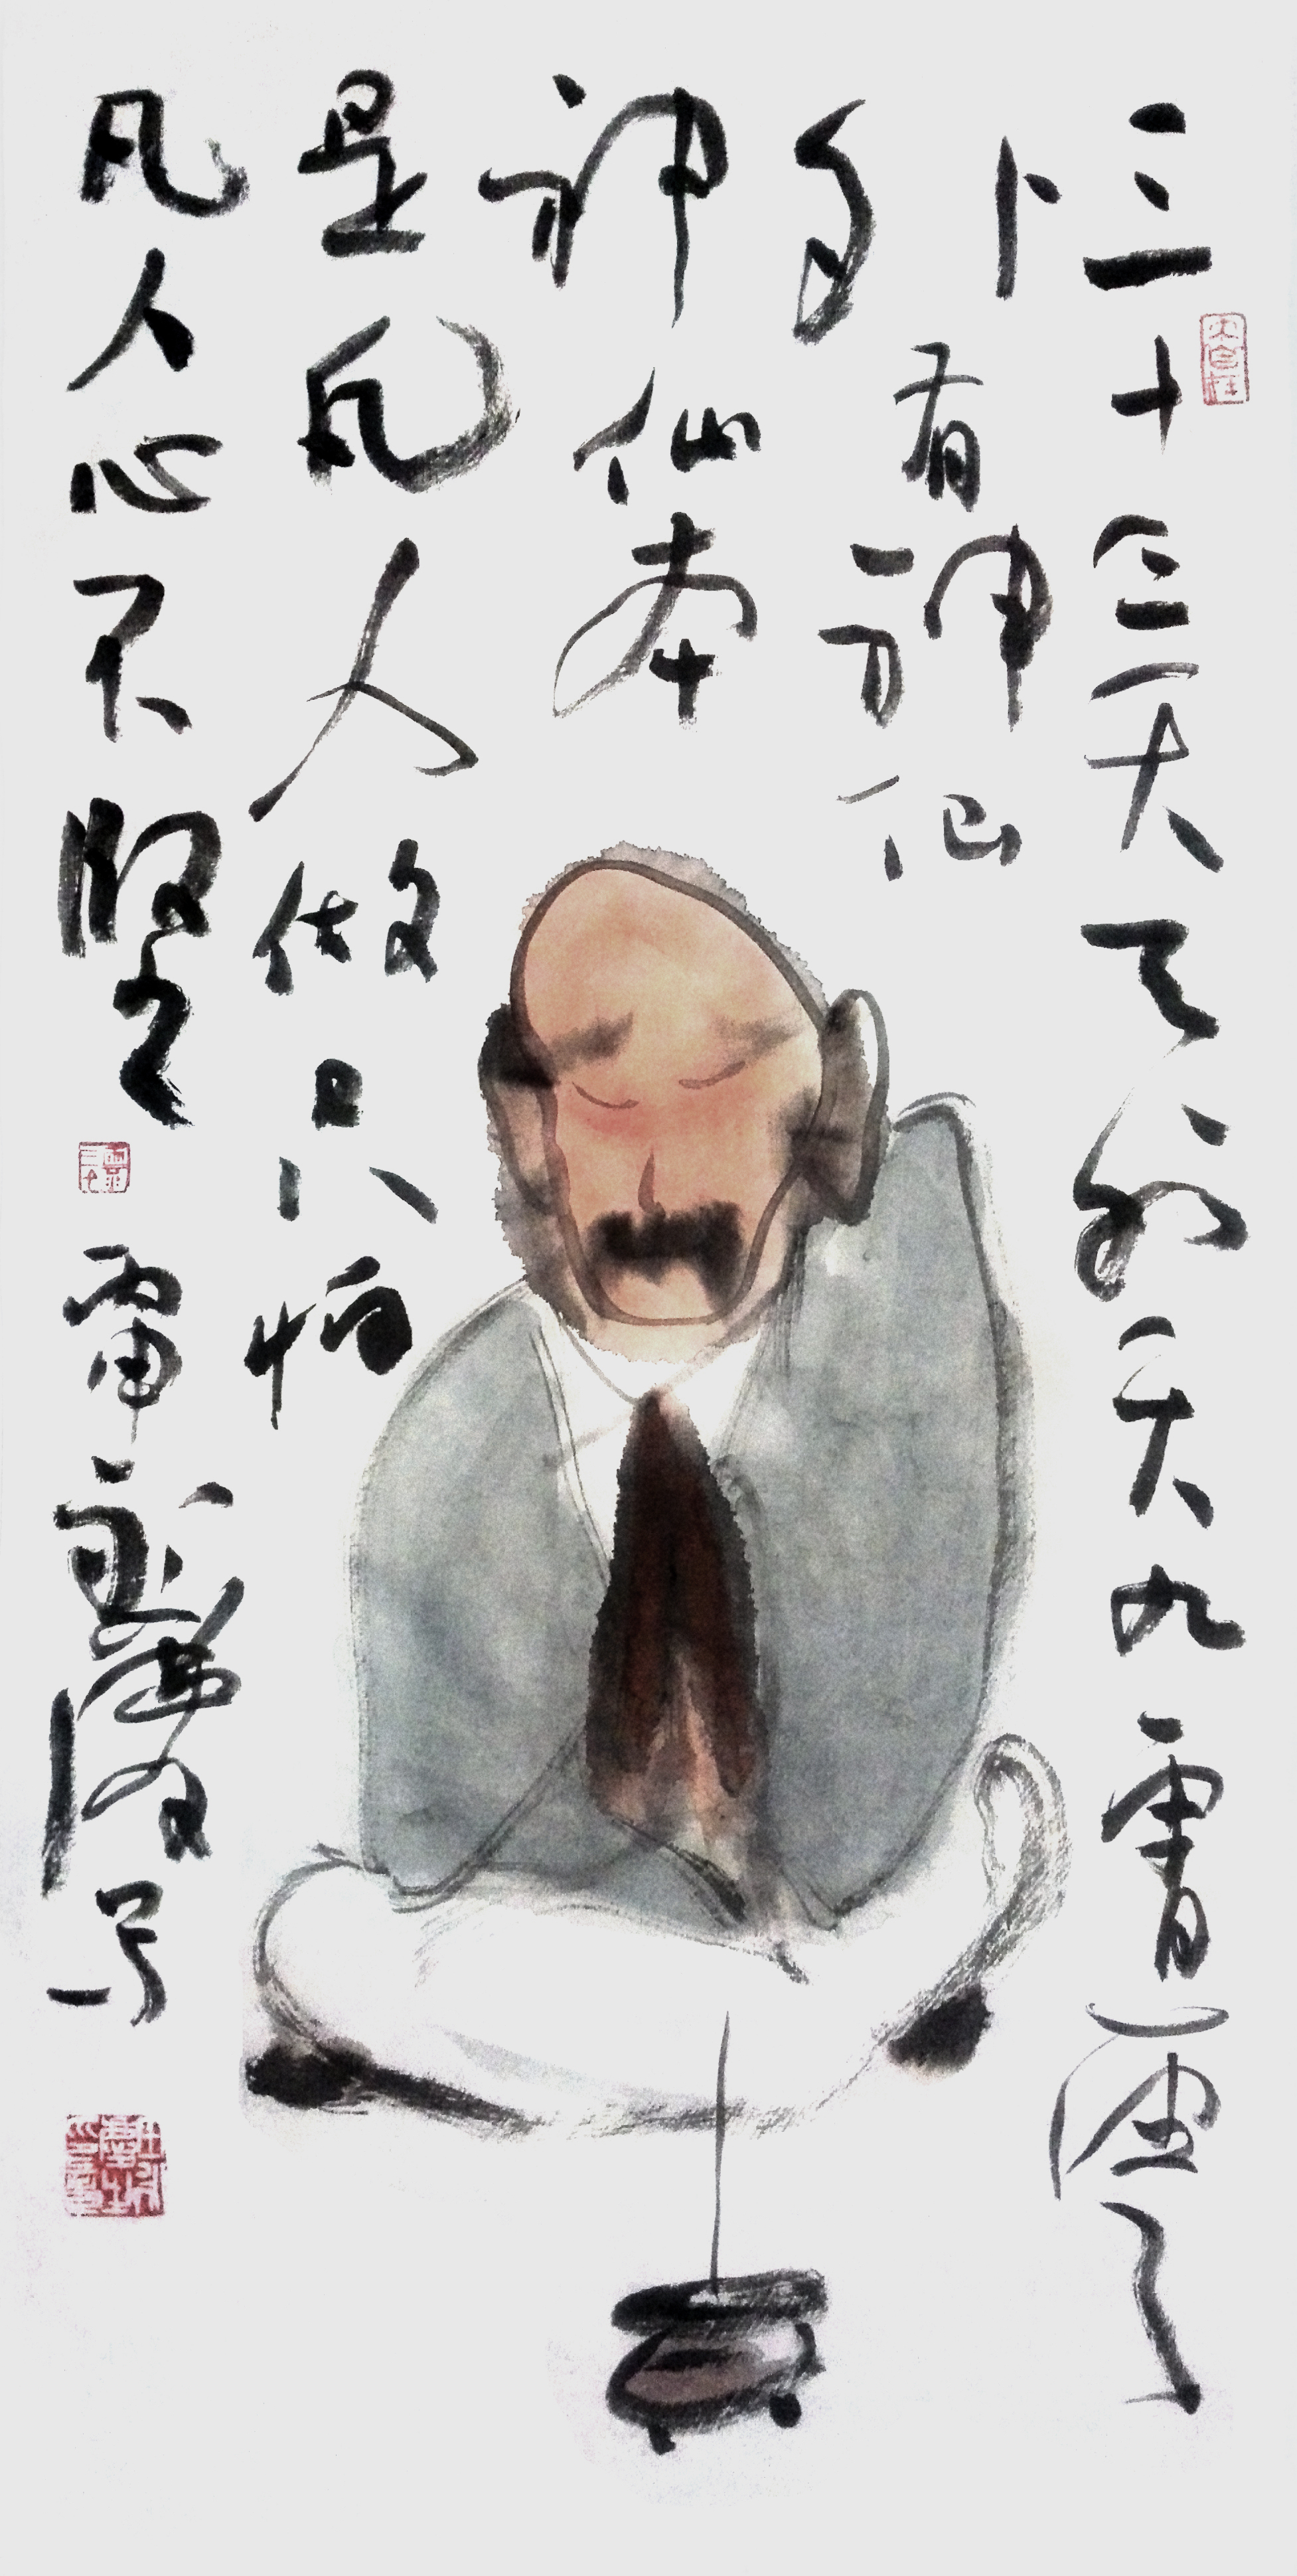 三十三天天外天九霄雲
外有神仙
神仙本
是凡人做只怕
凡人心不堅